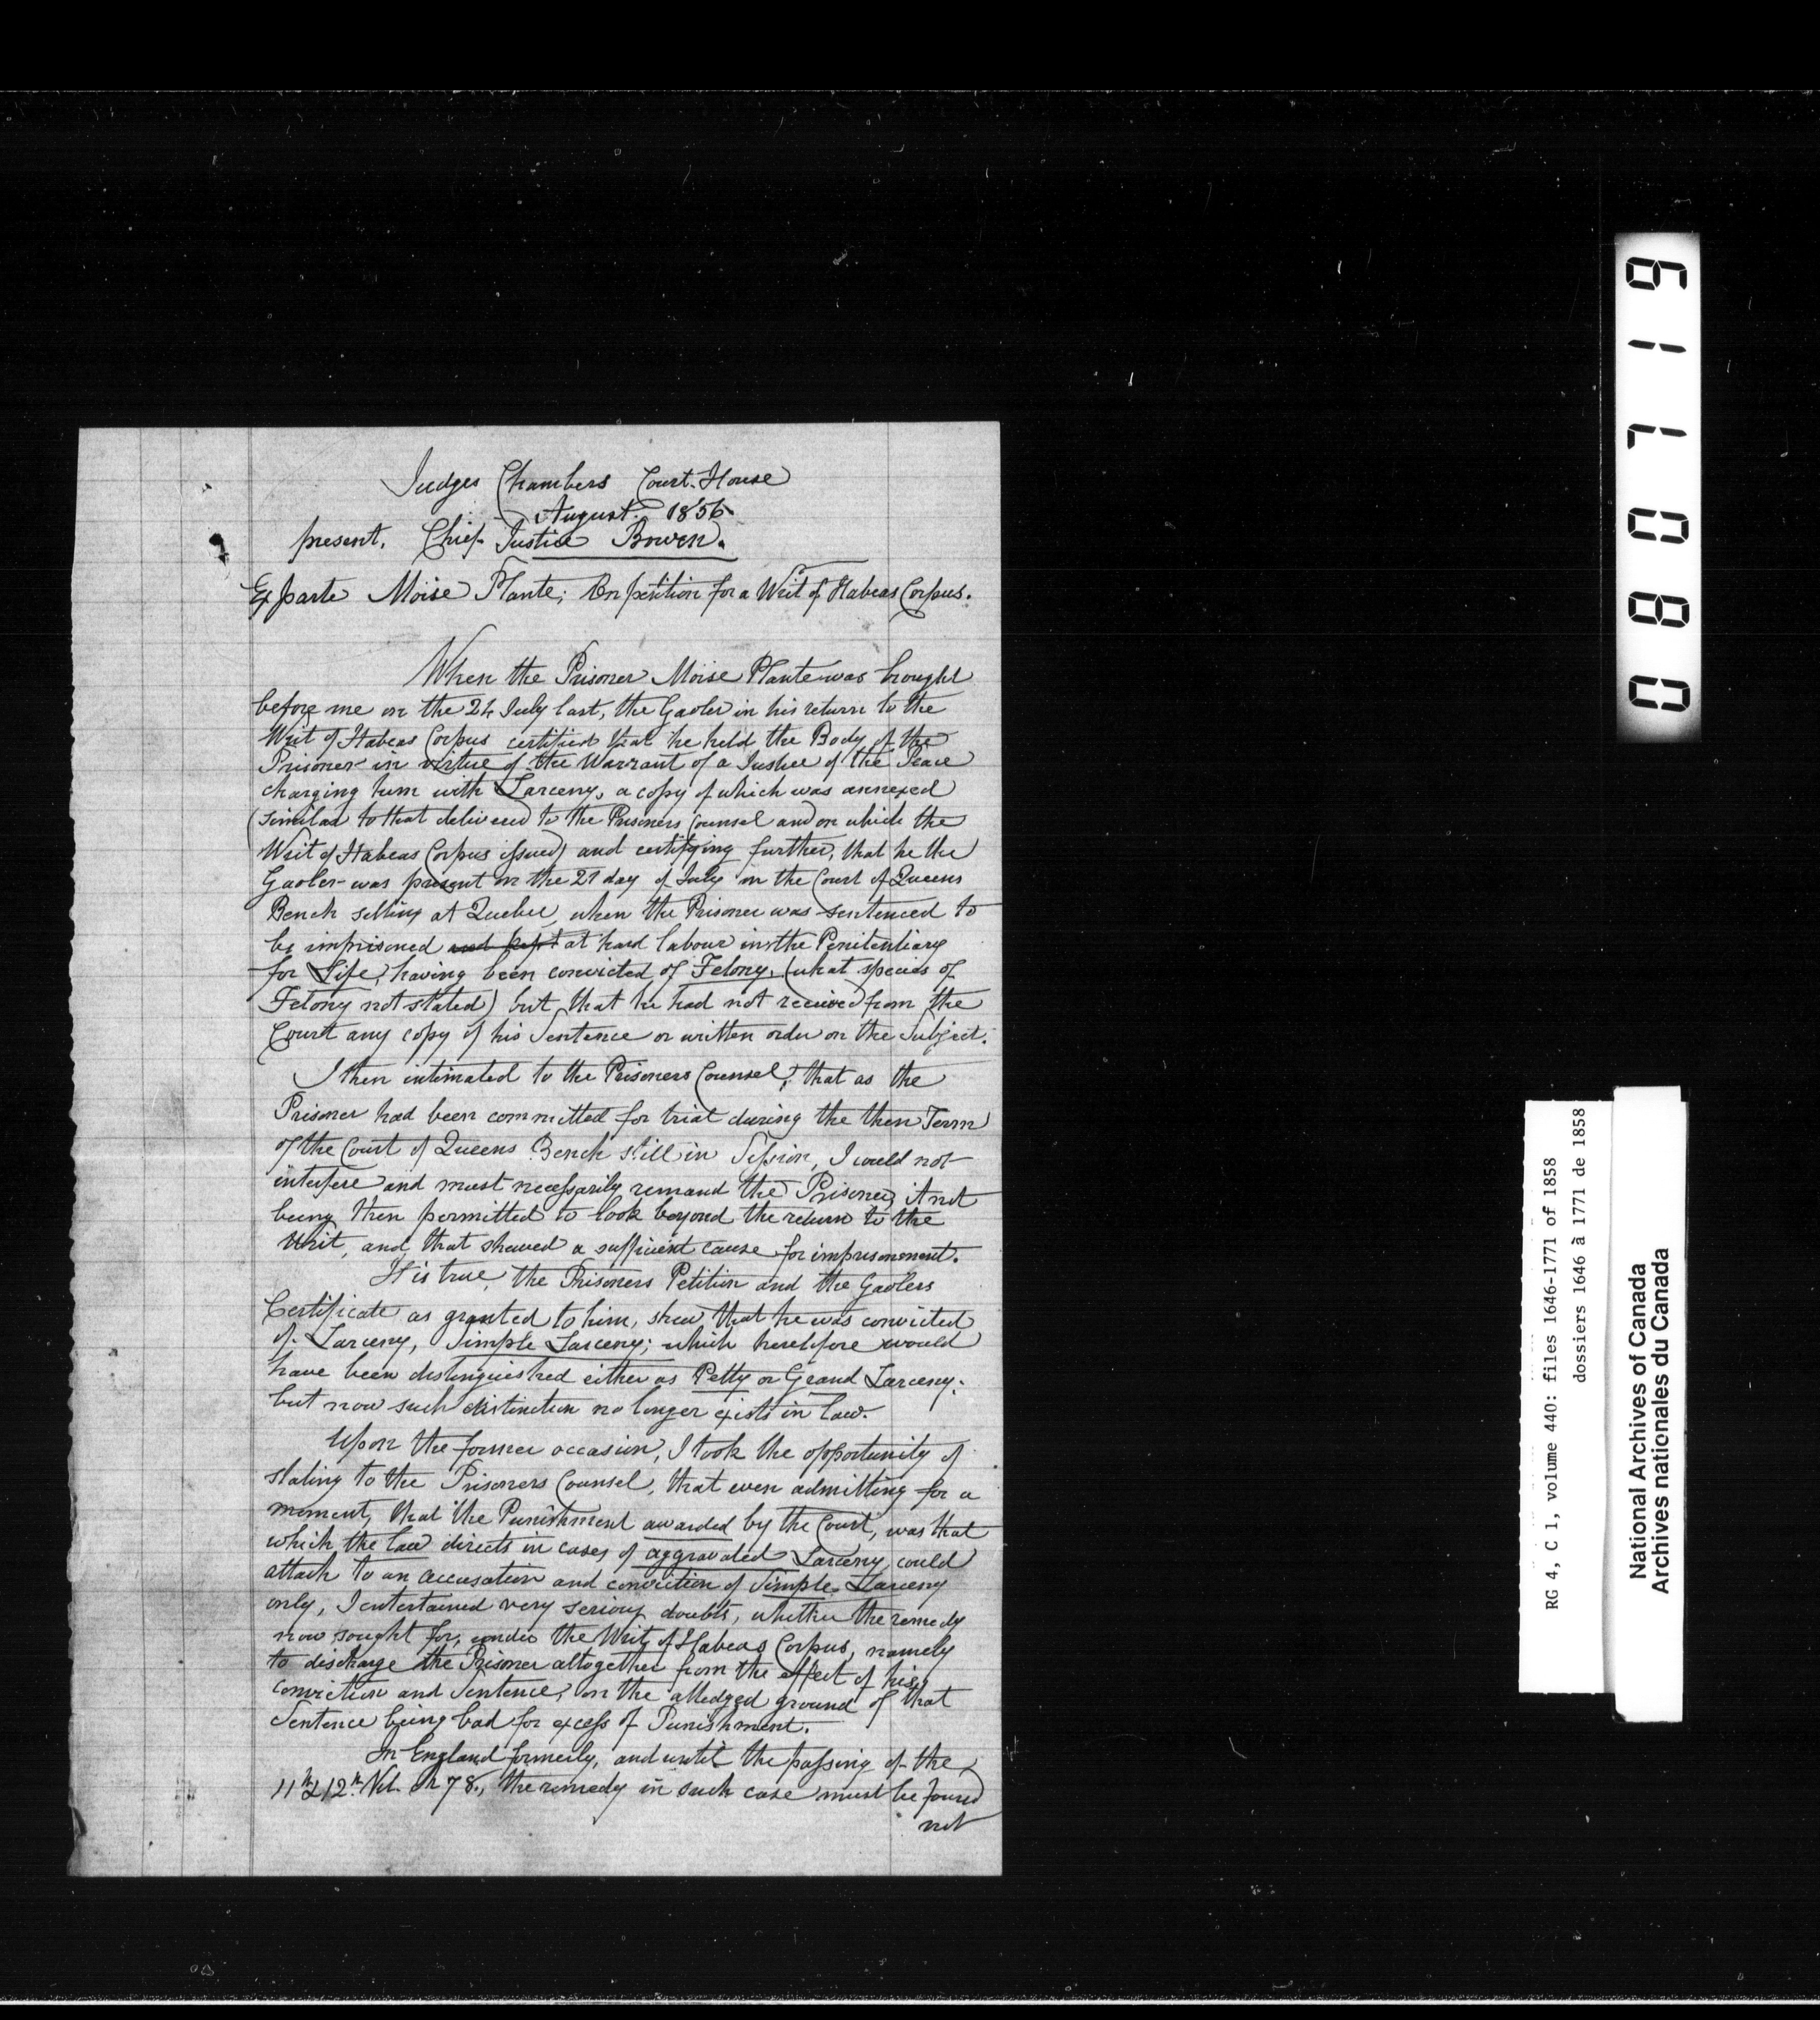 Judges Chambers Court-House
August 1856
present, Chief Justice Bowen.
Ex parte Moïse Plante; On petition for a Writ of Habeas Corpus.
When the Prisoner Moïse Plante was brought
before me on the 24 July last, the Gaoler in his return to the
Writ of Habeas Corpus certified that he held the Body of the
Prisoner in virtue of the Warrant of a Justice of the Peace
charging him with Larceny, a copy of which was annexed
(similar to that delivered to the Prisoners Counsel and on which the
Writ of Habeas Corpus issued) and certifying further, that he the
Gaoler was present on the 21 day of July in the Court of Queens
Bench sitting at Quebec, when the Prisoner was sentenced to
be imprisoned and kept at hard labour in the Penitentiary
for Life, having been convicted of Felony, (what species of
Felony not stated) but that he had not received from the
Court any copy of his Sentence or written order on the Subject.
I then intimated to the Prisoners Counsel, that as the
Prisoner had been committed for trial during the then Term
of the Court of Queens Bench still in Session, I could not
interfere and must necessarily remand the Prisoner, it not
being then permitted to look beyond the return to the
Writ, and that shewed a sufficient cause for imprisonment.
It is true, the Prisoners Petition and the Gaolers
Certificate as granted to him, shew that he was convicted
of Larceny, Simple Larceny; which heretofore would
have been distinguished either as Petty or Grand Larceny;
but now such distinction no longer exists in law.
Upon the former occasion, I took the opportunity of
stating to the Prisoners Counsel, that even admitting for a
moment, that the Punishment awarded by the Court, was that
which the law directs in cases of aggravated Larceny, could
attach to an accusation and conviction of Simple Larceny
only, I entertained very serious doubts, whether the remedy
now sought for, under the Writ of Habeas Corpus, namely
to discharge the Prisoner altogether from the effect of his
conviction and Sentence, on the alledged ground of that
Sentence being bad for excess of Punishment.
In England formerly, and until the passing of the
11th & 12th Vict. Ch 78., the remedy in such case must be found
not
080719
RG 4, C 1, volume 440: files 1646-1771 of 1858
dossiers 1646 à 1771 de 1858
National Archives of Canada
Archives nationales du Canada